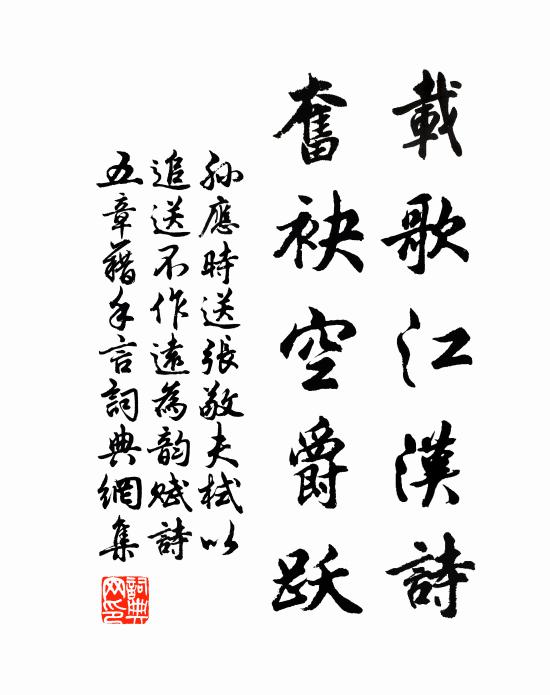 載歌江漢詩
奮袂空爵躍
孫應時送張敬夫栻以
追送不作遠為韵賦詩
五章藉手言詞典網集